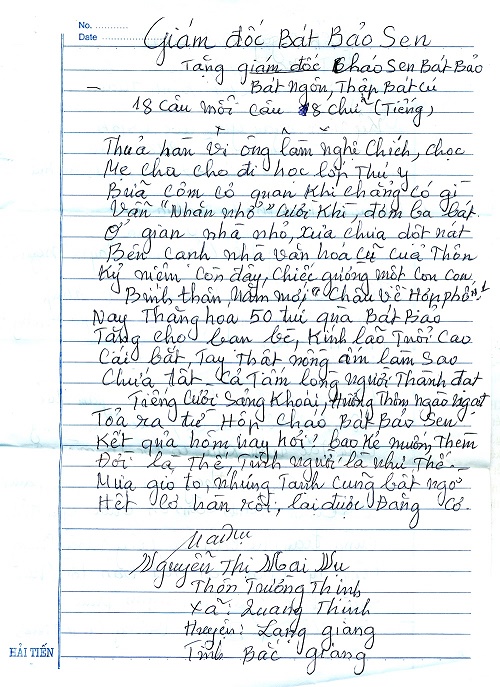 No.
Date
Giám đốc Bát Bảo Sen
Tặng giám đốc Cháo Sen Bát Bảo
Bát Ngôn, Thập Bát Cú
18 câu mỗi câu 8 chữ (Tiếng)
Thuở hàn vi ông làm nghề Chích, chọc
Mẹ cha cho đi học lớp Thú y
Bữa cơm cơ quan khi chẳng có gì
Vẫn "Nhăn nhở" cười khì, đớm ba bát.
Ở gian nhà nhỏ, xưa chưa dột nát
Bên cạnh nhà văn hoá cũ của Thôn
Kỷ niệm còn đây, chiếc giường một con con
Bính thân, Năm mới "Châu về Hợp phố"!
Nay Thăng hoa 50 túi quà Bát Bảo
Tặng cho bạn bè, Kính lão Tuổi Cao
Cái bắt, Tay Thật nồng ấm làm Sao
Chưa đất cả Tấm lòng người Thành đạt
Tiếng Cười Sảng Khoái, Hương Thơm ngào ngạt
Toả ra từ Hộp Cháo Bát Bảo Sen
Kết quả hôm nay hỏi? bao kẻ muốn, Thèm
Đời là Thế Tình người là như Thế.
Mưa gió to, nhưng Tạnh cũng bất ngờ
Hết cơ hàn rồi, lại được Đằng cơ.
Nguyễn Thị Mai
Thôn Trường Thịnh
Xã: Quang Thịnh
Huyện: Lạng giang
Tỉnh Bắc giang
HẢI TIẾN